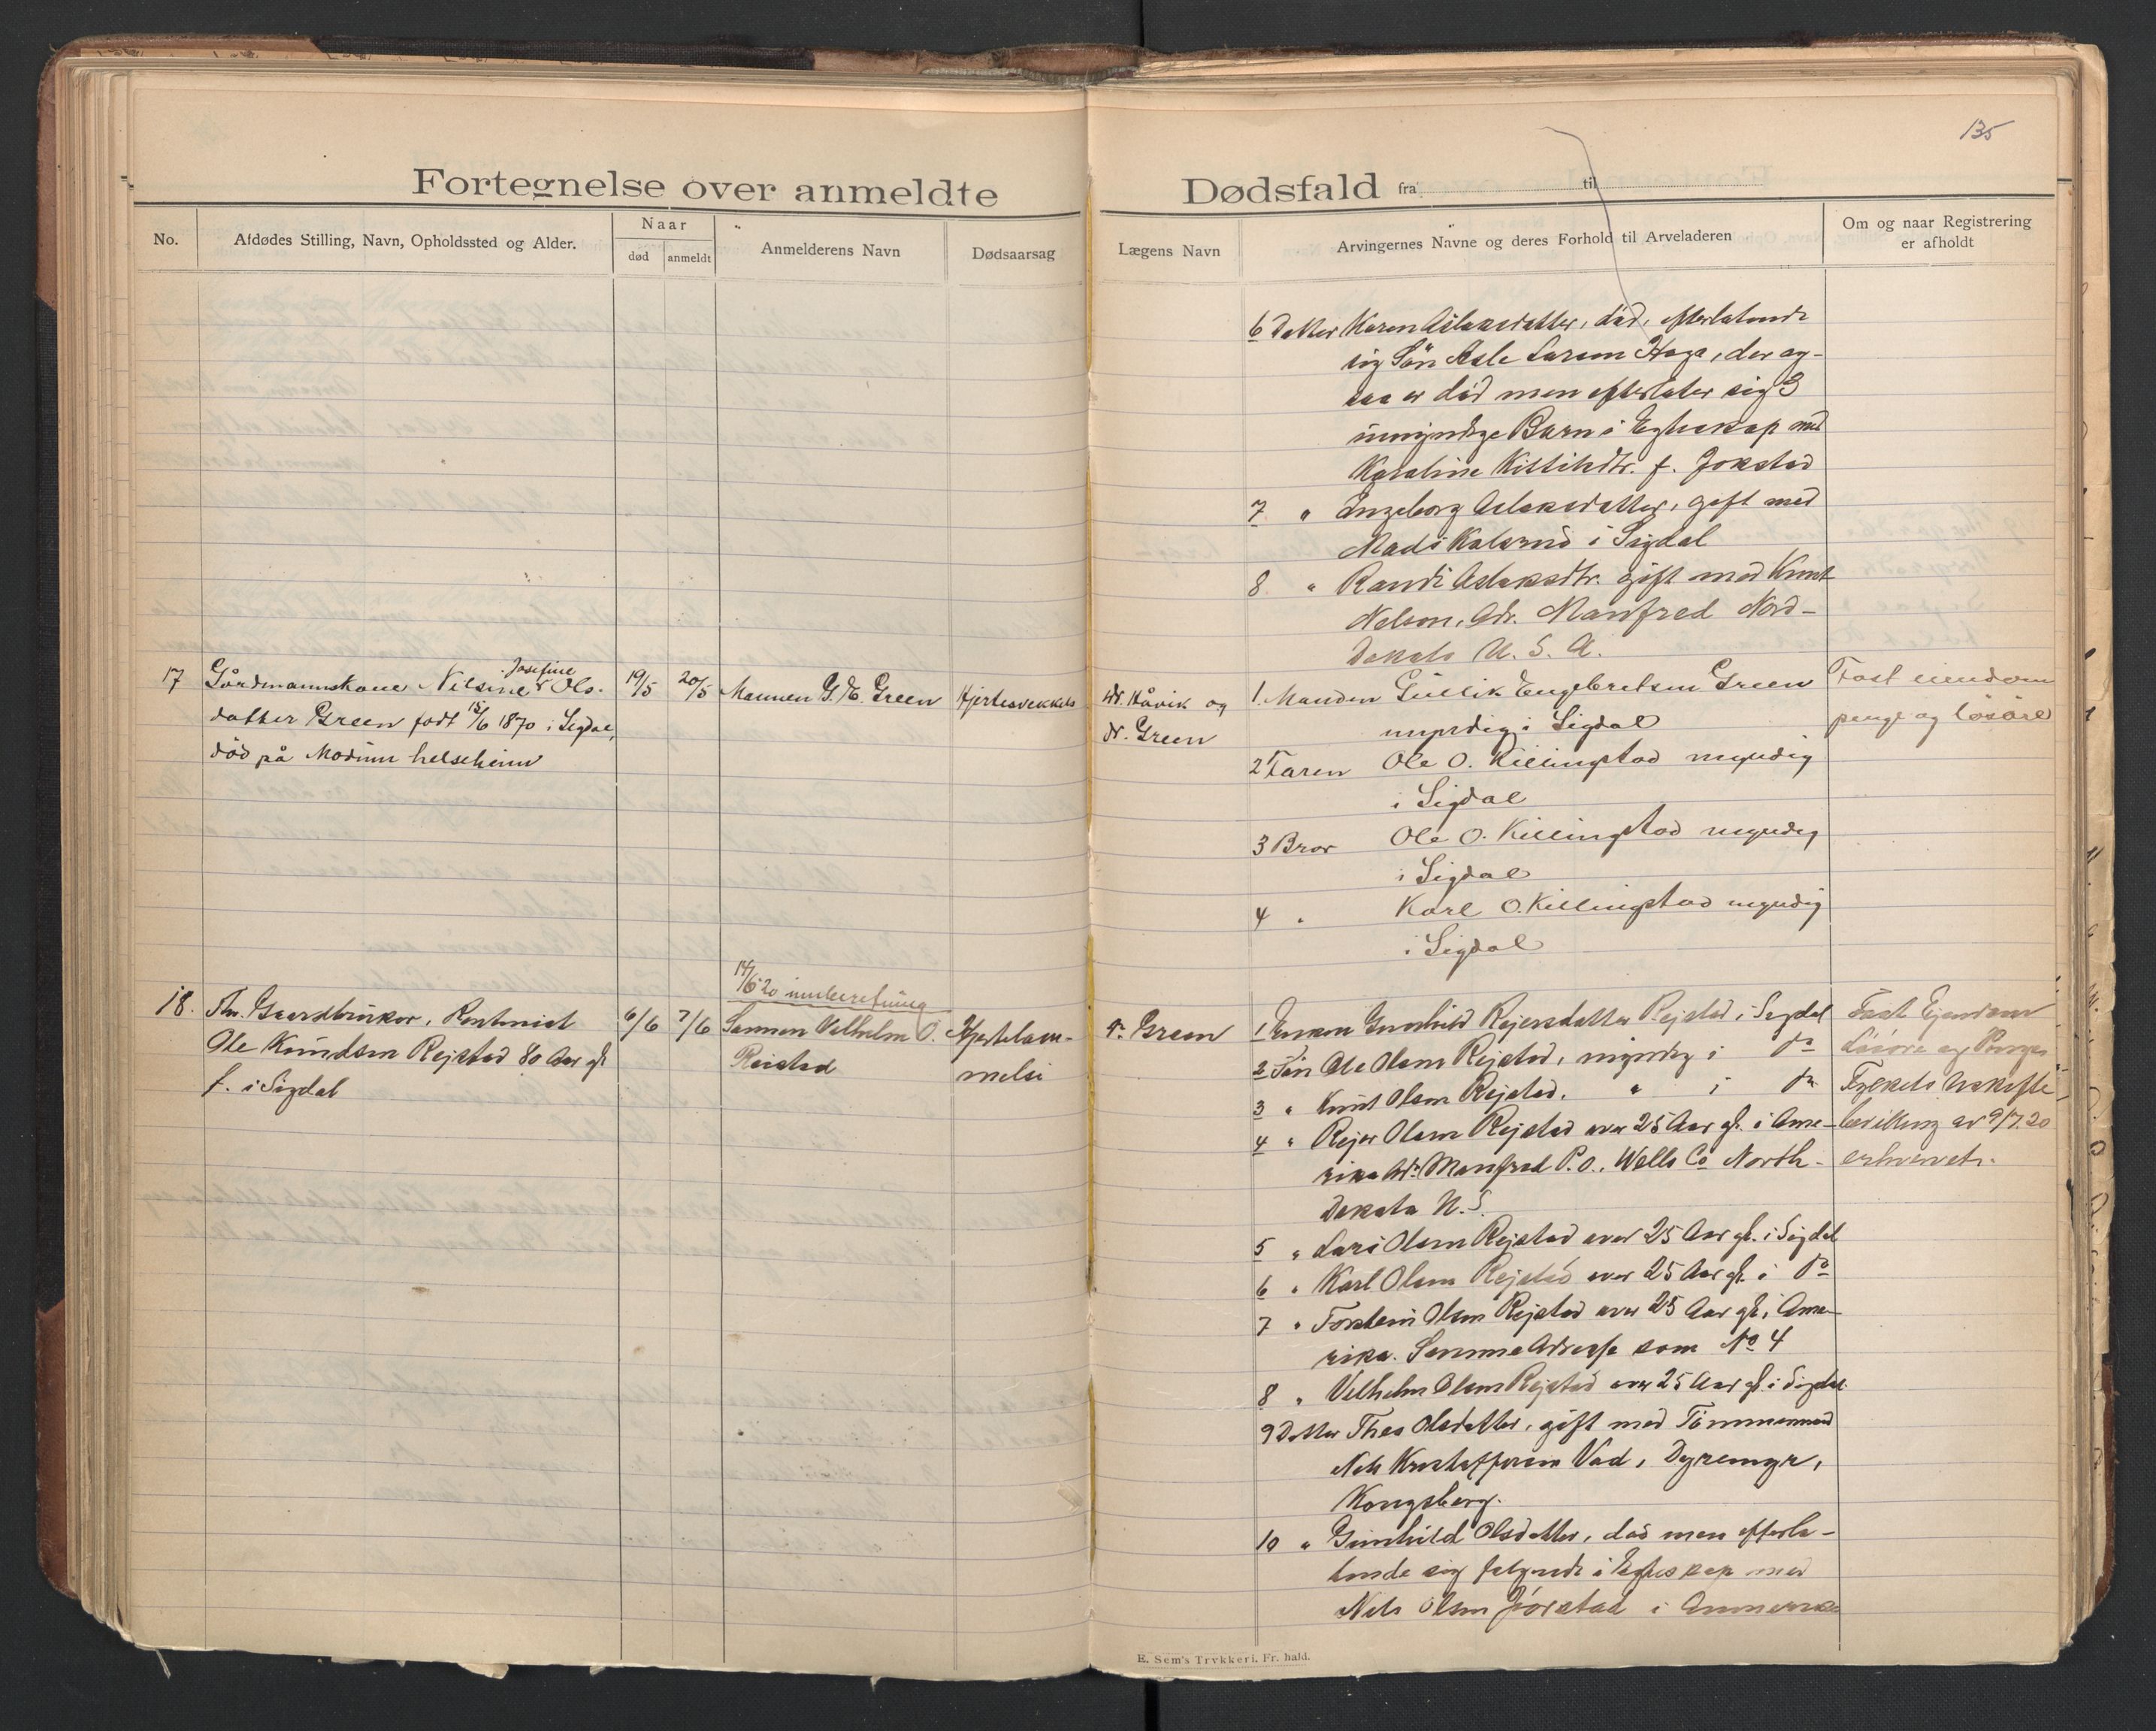 135
Fortegnelse over anmeldte Dødsfald fra til
No.
Afdødes Stilling, Navn, Opholdssted og Alder.
Naar
død
anmeldt
Anmelderens Navn
Dødsaarsag
Lægens Navn
Arvingernes Navne og deres Forhold til Arveladeren
Om og naar Registrering
er afholdt
6 Datter Karen Aslaksdatter, død, efterlatende
sig Søn Asle Larsen Haga, der og-
saa er død men efterlater sig 3
umyndige Barn i Egteskap med
Karoline Kittilsdtr. f. Jokstad
7 " Ingeborg Aslaksdatter, gift med
Mads Kalsrud i Sigdal
8 " Randi Aslaksdtr. gift med Knut
Nelson, Adr. Manfred Nord-
Dakota U. S. A.
17
Gårdmannskone Nilsine Josefine Ols-
datter Green født 15/6 1870 i Sigdal,
død på Modum helseheim
19/5
20/5
Mannen G. E. Green
Hjertesvekkels
dr. Håvik og
dr. Green
1. Manden Gullik Engebretsen Green
myndig i Sigdal
2 Faren Ole O. Killingstad myndig
i Sigdal
3 Bror Ole O. Killingstad myndig
i Sigdal
4 " Karl O. Killingstad myndig
i Sigdal
Fast eiendom
penge og løsøre
18.
Fhv. Gaardbruker, Rentenist
Ole Knudsen Rejstad 80 Aar gl
f. i Sigdal
6/6
7/6
14/6 20 underretning
Sønnen Vilhelm O.
Reistad
Hjertelam-
melse
dr. Green
1 Enken Gunhild Rejersdatter Rejstad i Sigdal
2 Søn Ole Olsen Rejstad, myndig i do
3 " Knut Olsen Rejstad, " i do
4 " Rejer Olsen Rejstad over 25 Aar gl. i Ame-
rika Adr. Manfred P.O., Wells Co North-
Dakota U.S.
5 " Lars Olsen Rejstad over 25 Aar gl. i Sigdal
6 " Karl Olsen Rejstad over 25 Aar gl. i do
7 " Torstein Olsen Rejstad over 25 Aar gl. i Ame-
rika. Samme Adresse som No 4
8 " Vilhelm Olsen Rejstad over 25 Aar gl. i Sigdal
9 Datter Thea Olsdatter, gift med Tømmermand
Nels Kristoffersen Vad, Dyremyr,
Kongsberg.
10 " Gunhild Olsdatter, død men efterla-
tende sig følgende i Egteskap med
Nels Olsen Jørstad i Amerika
Fast Ejendom
Løsøre og Penge
Fylkets Uskifte
bevilling av 9/7.20
erhvervet.
E. Sem's Trykkeri, Fr.hald.